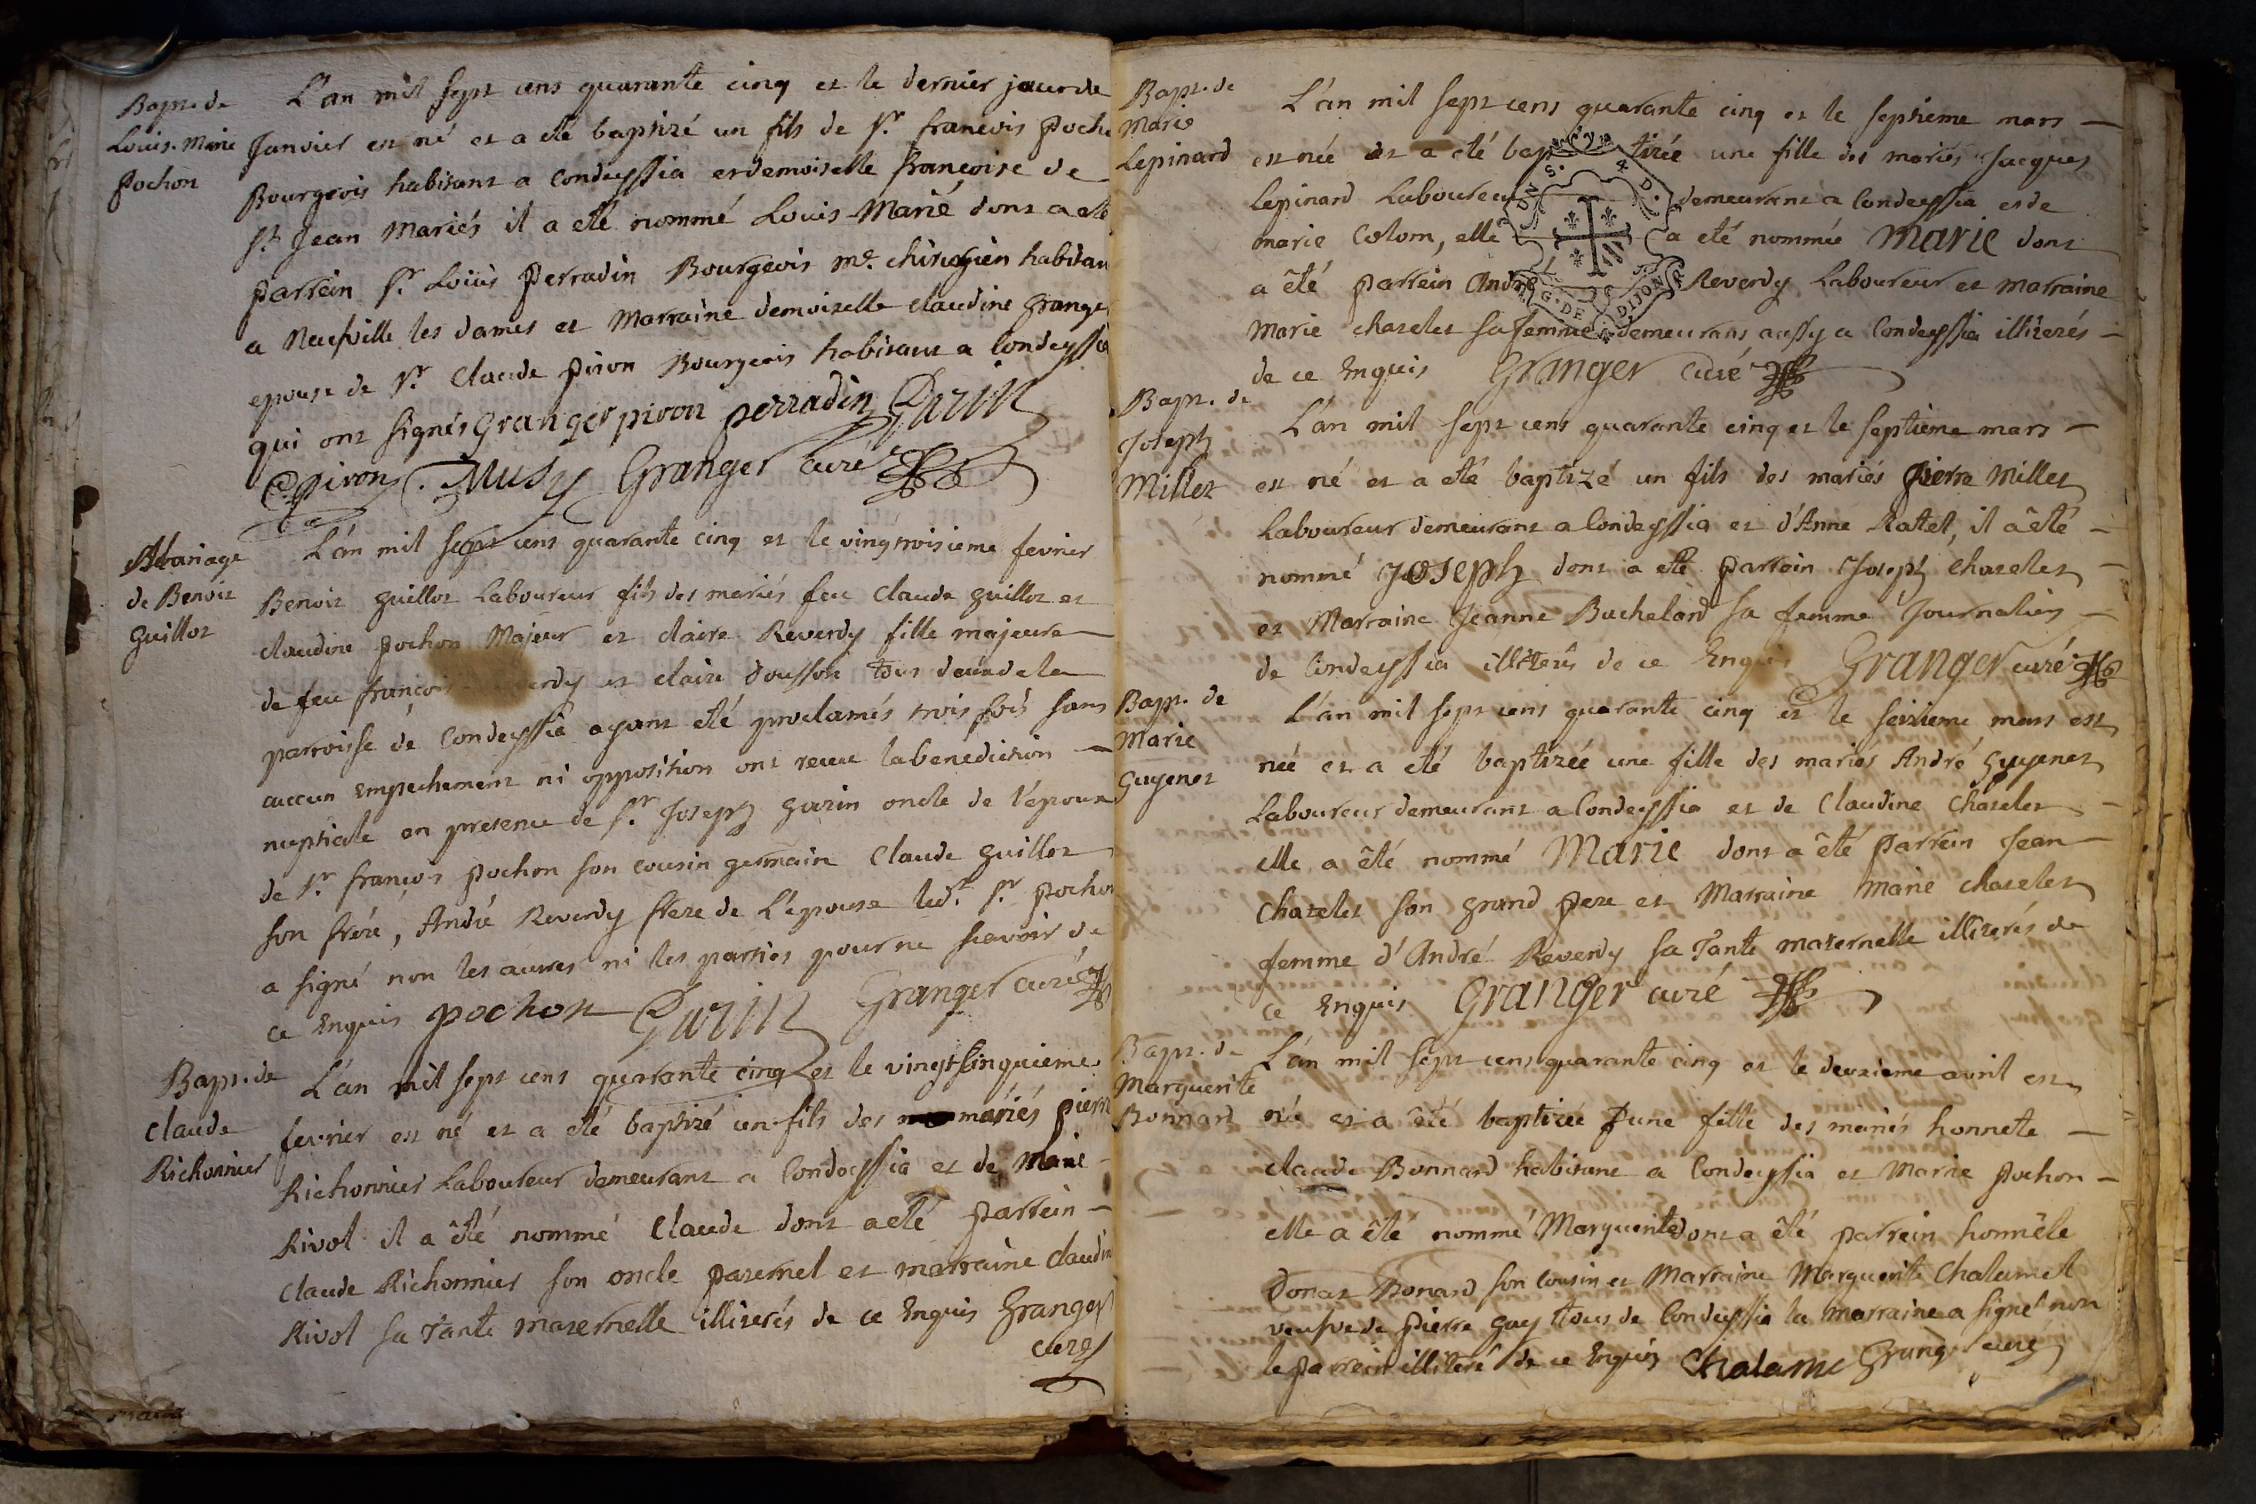 Bapt. de
Louis-Marie
Pochon
L'an mil sept cens quarante cinq et le dernier jour de
Janvier est né et a eté baptizé un fils de Sr. francois Poch
Bourgeois habitant a Condeyssia et demoiselle francoise de
St. Jean Mariés il a eté nommé Louis-Marie, dont a eté
parrein Sr. Loüis Perradin Bourgeois me. chirugien habitan
a Neufville les dames et Marraine demoiselle claudine Grange
epouse de Sr. Claude Piron Bourgeois habitant a Condeyssia
qui ont signés Granger piron perradin Gurin
Piron. Musy Granger curé
Mariage
de Benoit
Guillot
L'an mil sept cens quarante cinq et le vingtroisieme fevrier
Benoit Guillot Laboureur fils des mariés feu Claude Guillot et
claudine pochon Majeur et claire Reverdy fille majeure
de feu françois erdy et claire Dousson tous deux de la
parroisse de Condeyssia ayant eté proclamés trois fois sans
aucun Empechement ni opposition ont receu la benediction
nuptiale en presence de Sr. Joseph Gurin oncle de l'epoux
de Sr. françois Pochon son cousin germain Claude Guillot
son frere, André Reverdy frere de L'epouse led. Sr. Pochon
a signé non les autres ni les parties pour ne scavoir de
ce Enquis pochon Gurin Granger curé
Bapt. de
Claude
Richonnier
L'an mil sept cens quarante cinq et le vingt sinquieme
fevrier est né et a eté baptizé un fils des mariés Pierre
Richonnier Laboureur demeurant a Condeyssia et de Marie
Rivol il a êté nommé Claude dont a eté parrein
Claude Richonnier son oncle paternel et marraine Claudine
Rivol sa Tante maternelle illiterés de ce Enquis Granger
curé
Bapt. de
Marie
Lepinard
L'an mil sept cens quarante cinq et le septieme mars
est née et a eté baptizée une fille des mariés Jacques
Lepinard Laboureur demeurant a Condeyssia et de
marie Colom, elle a eté nommée Marie dont
a êté parrein André Reverdy Laboureur et marraine
Marie chatelet sa femme demeurans aussy a Condeyssia illiterés
de ce Enquis Granger curé
G. DE DIJON
Bapt. de
Joseph
Millet
L'an mil sept cens quarante cinq et le septieme mars
est né et a eté baptizé un fils des mariés Pierre Millet
Laboureur demeurant a Condeyssia et d'Anne Ratel, il a êté
nommé Joseph dont a eté parrein Joseph Chatelet
et Marraine Jeanne Buchelard sa femme Journaliers
de Condeyssia illiterés de ce Enquis Granger curé
Bapt. de
Marie
Guyenet
L'an mil sept cens quarante cinq et le seizieme mars est
née et a eté baptizée une fille des mariés André Guyenet
Laboureur demeurant a Condeyssia et de Claudine Chatelet
elle a êté nommé Marie dont a êté parrein Jean
Chatelet son grand pere et Marraine Marie chatelet
femme d'André Reverdy sa Tante maternelle illiterés de
ce Enquis Granger curé
Bapt. de
Marguerite
Bonnard
L'an mil sept cens quarante cinq et le deuxieme avril est
née et a êté baptizée une fille des mariés honnete
claude Bonnard habitant a Condeyssia et Marie Pochon
elle a êté nommé Marguerite dont a êté parrein honnête
Donat Bonard son Cousin et Marraine Marguerite Chalamel
veufve de Pierre Guy tous de Condeyssia la Marraine a signé non
le parrein illiteré de ce Enquis Chalame Grang curé